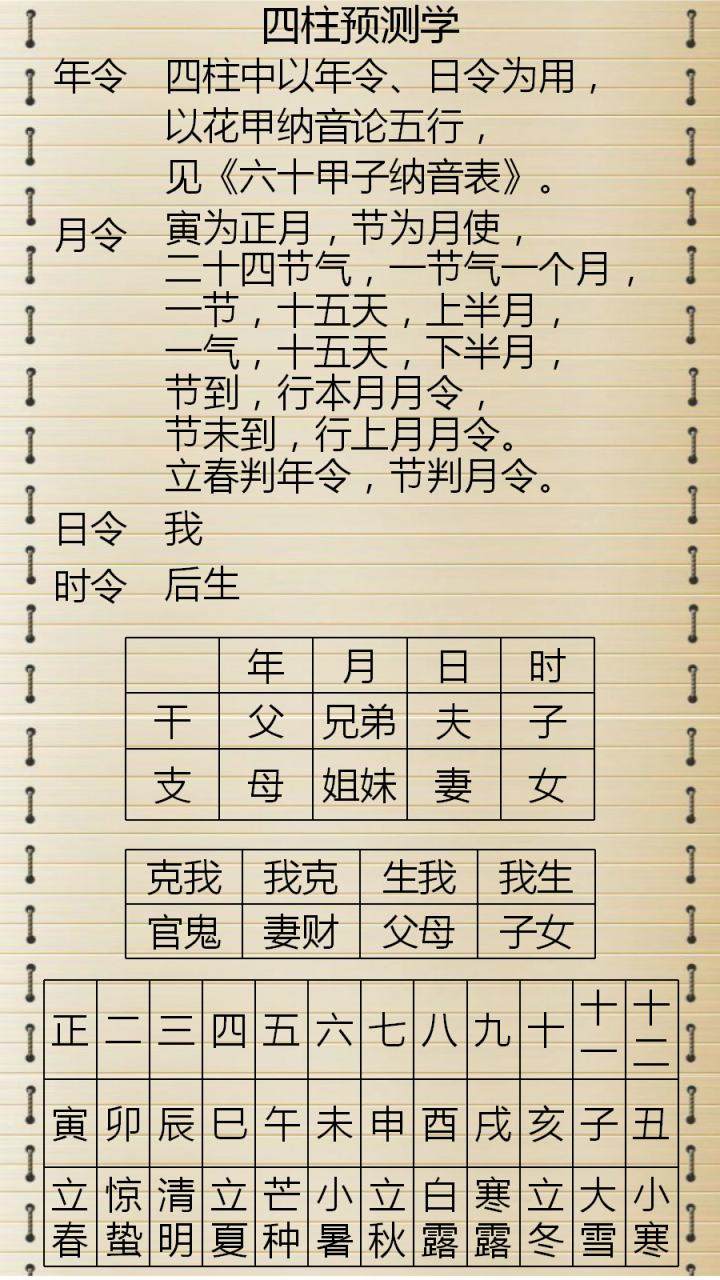 四柱预测学
年令 四柱中以年令、日令为用，
以花甲纳音论五行，
见《六十甲子纳音表》。
月令 寅为正月，节为月使，
二十四节气，一节气一个月，
一节，十五天，上半月，
一气，十五天，下半月，
节到，行本月月令，
节未到，行上月月令。
立春判年令，节判月令。
日令 我
时令 后生
年 月 日 时
干 父 兄弟 夫 子
支 母 姐妹 妻 女
克我 我克 生我 我生
官鬼 妻财 父母 子女
正 二 三 四 五 六 七 八 九 十 十一 十二
寅 卯 辰 巳 午 未 申 酉 戌 亥 子 丑
立春 惊蛰 清明 立夏 芒种 小暑 立秋 白露 寒露 立冬 大雪 小寒